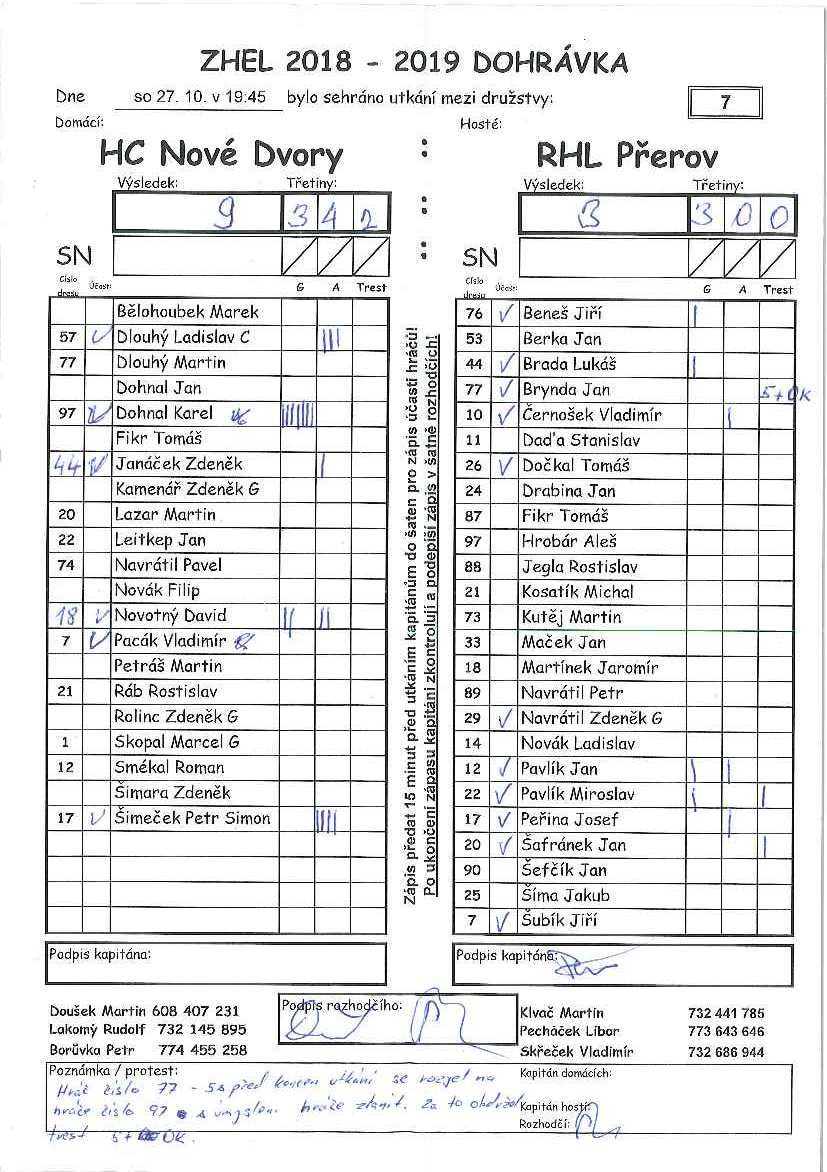 ZHEL 2018 - 2019 DOHRÁVKA
Dne so 27. 10. v 19:45 bylo sehráno utkání mezi družstvy: 7
Domácí: Hosté:
HC Nové Dvory : RHL Přerov
Výsledek: Třetiny: : Výsledek: Třetiny:
9 3 4 2 3 3 0 0
SN : SN
Číslo dresu Účast: G A Trest Číslo dresu Účast: G A Trest
Bělohoubek Marek 76 ✓ Beneš Jiří |
57 ✓ Dlouhý Ladislav C ||| 53 Berka Jan
77 Dlouhý Martin 44 ✓ Brada Lukáš |
Dohnal Jan 77 ✓ Brynda Jan 5+OK
97 ✓ Dohnal Karel 10 ✓ Černošek Vladimír |
Fikr Tomáš 11 Daďa Stanislav
44 ✓ Janáček Zdeněk | 26 ✓ Dočkal Tomáš
Kamenář Zdeněk G 24 Drabina Jan
20 Lazar Martin 87 Fikr Tomáš
22 Leitkep Jan 97 Hrobár Aleš
74 Navrátil Pavel 88 Jegla Rostislav
Novák Filip 21 Kosatík Michal
18 ✓ Novotný David || || 73 Kutěj Martin
7 ✓ Pacák Vladimír 33 Maček Jan
Petráš Martin 18 Martínek Jaromír
21 Ráb Rostislav 89 Navrátil Petr
Rolinc Zdeněk G 29 ✓ Navrátil Zdeněk G
1 Skopal Marcel G 14 Novák Ladislav
12 Smékal Roman 12 ✓ Pavlík Jan | |
Šimara Zdeněk 22 ✓ Pavlík Miroslav | |
17 ✓ Šimeček Petr Simon |||| 17 ✓ Peřina Josef |
20 ✓ Šafránek Jan |
90 Šefčík Jan
25 Šíma Jakub
7 ✓ Šubík Jiří
Zápis předat 15 minut před utkáním kapitánům do šaten pro zápis účasti hráčů!
Po ukončení zápasu kapitáni zkontrolují a podepíší zápis v šatně rozhodčích!
Podpis kapitána: Podpis kapitána:
Podpis rozhodčího:
Doušek Martin 608 407 231 Klvač Martin 732 441 785
Lakomý Rudolf 732 145 895 Pecháček Libor 773 643 646
Borůvka Petr 774 455 258 Skřeček Vladimír 732 686 944
Poznámka / protest: Kapitán domácích:
Hráč číslo 77 - 5s před koncem utkání se rozjel na
hráče číslo 97 s úmyslem hráče zranit. Za to obdržel Kapitán hostí:
trest 5+ OK. Rozhodčí: